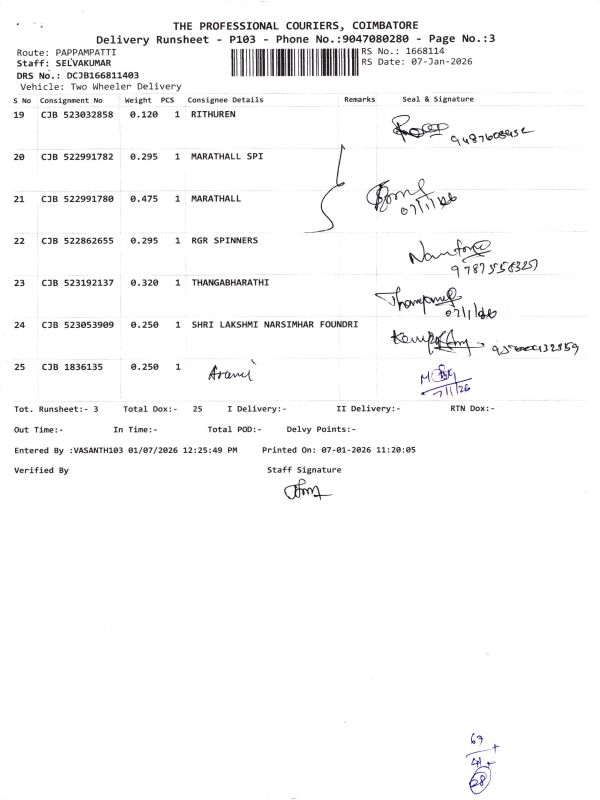 THE PROFESSIONAL COURIERS, COIMBATORE
Delivery Runsheet - P103 - Phone No.:9047080280 - Page No.:3
Route: PAPPAMPATTI RS No.: 1668114
Staff: SELVAKUMAR RS Date: 07-Jan-2026
DRS No.: DCJB166811403
Vehicle: Two Wheeler Delivery
S No Consignment No Weight PCS Consignee Details Remarks Seal & Signature
19 CJB 523032858 0.120 1 RITHUREN
20 CJB 522991782 0.295 1 MARATHALL SPI
21 CJB 522991780 0.475 1 MARATHALL
07/1/26
22 CJB 522862655 0.295 1 RGR SPINNERS
23 CJB 523192137 0.320 1 THANGABHARATHI
07/1/26
24 CJB 523053909 0.250 1 SHRI LAKSHMI NARSIMHAR FOUNDRI
25 CJB 1836135 0.250 1
7/1/26
Tot. Runsheet:- 3 Total Dox:- 25 I Delivery:- II Delivery:- RTN Dox:-
Out Time:- In Time:- Total POD:- Delvy Points:-
Entered By :VASANTH103 01/07/2026 12:25:49 PM Printed On: 07-01-2026 11:20:05
Verified By Staff Signature
69 +
41 +
28